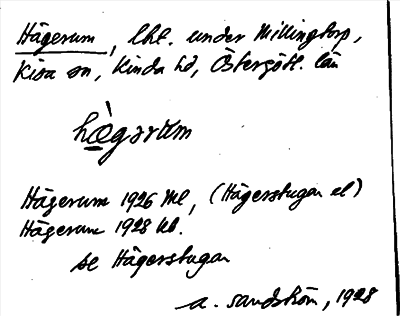 Hägerum, lht. under Millingtorp,
Kisa sn, Kinda hd, Östergötl. län
hægərùm
Hägerum 1926 Ml, (Hägerstugan el)
Hägerum 1928 kb.
se Hägerstugan
A. Sandström, 1928